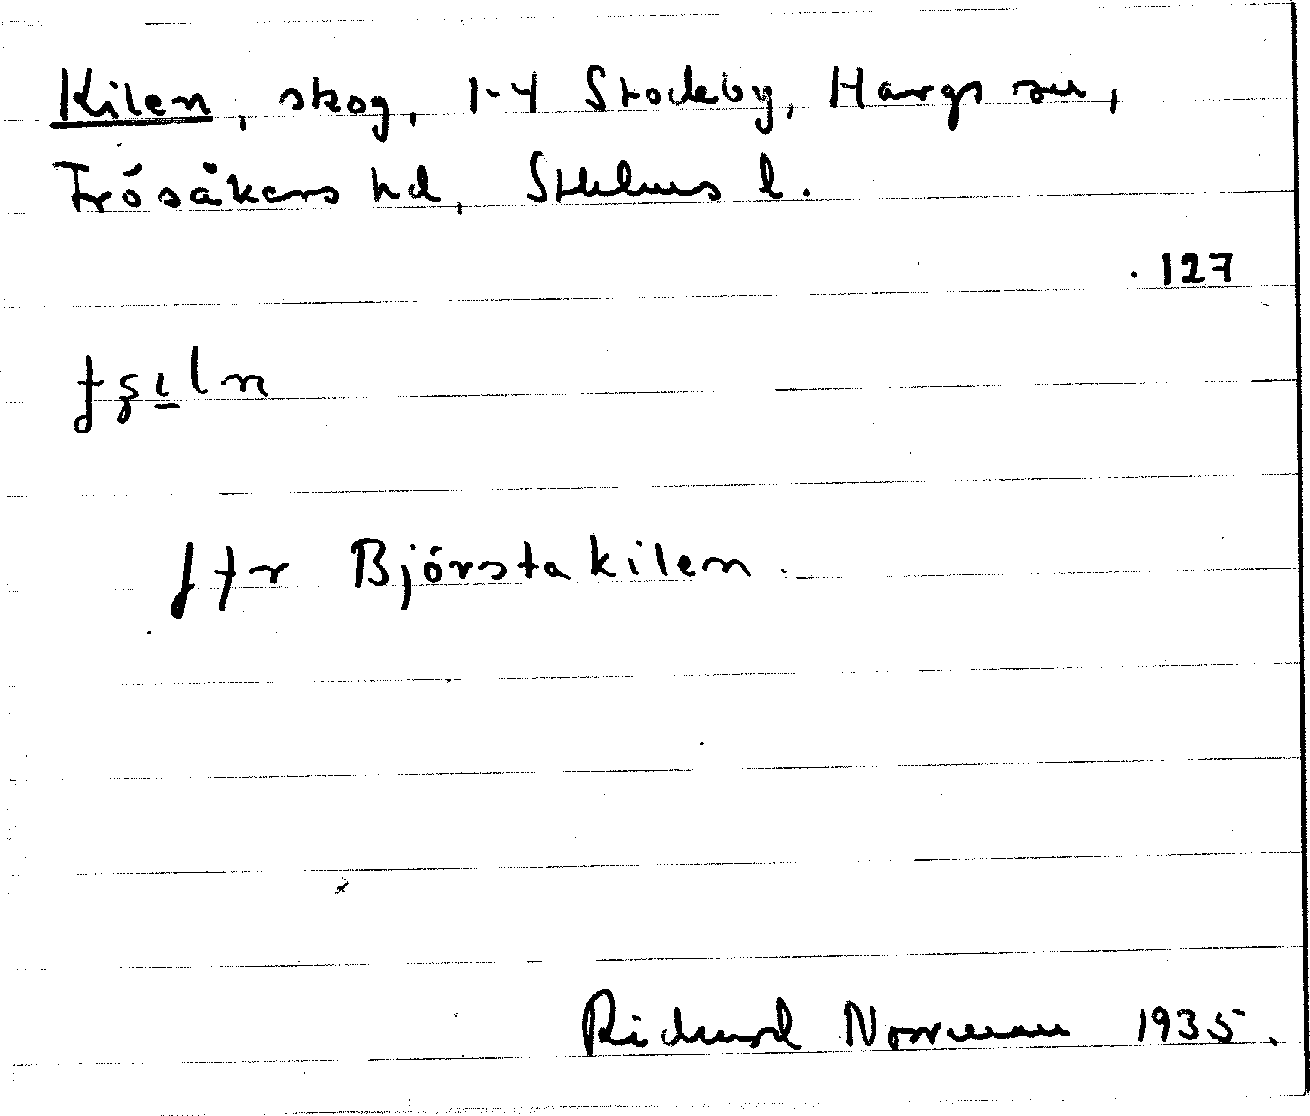 Kilen, skog, 1-4 Stockby, Hargs sn,
Frösåkers hd, Sthlms l.
127
Jfr Björsta kilen.
Richard Norrman 1935.